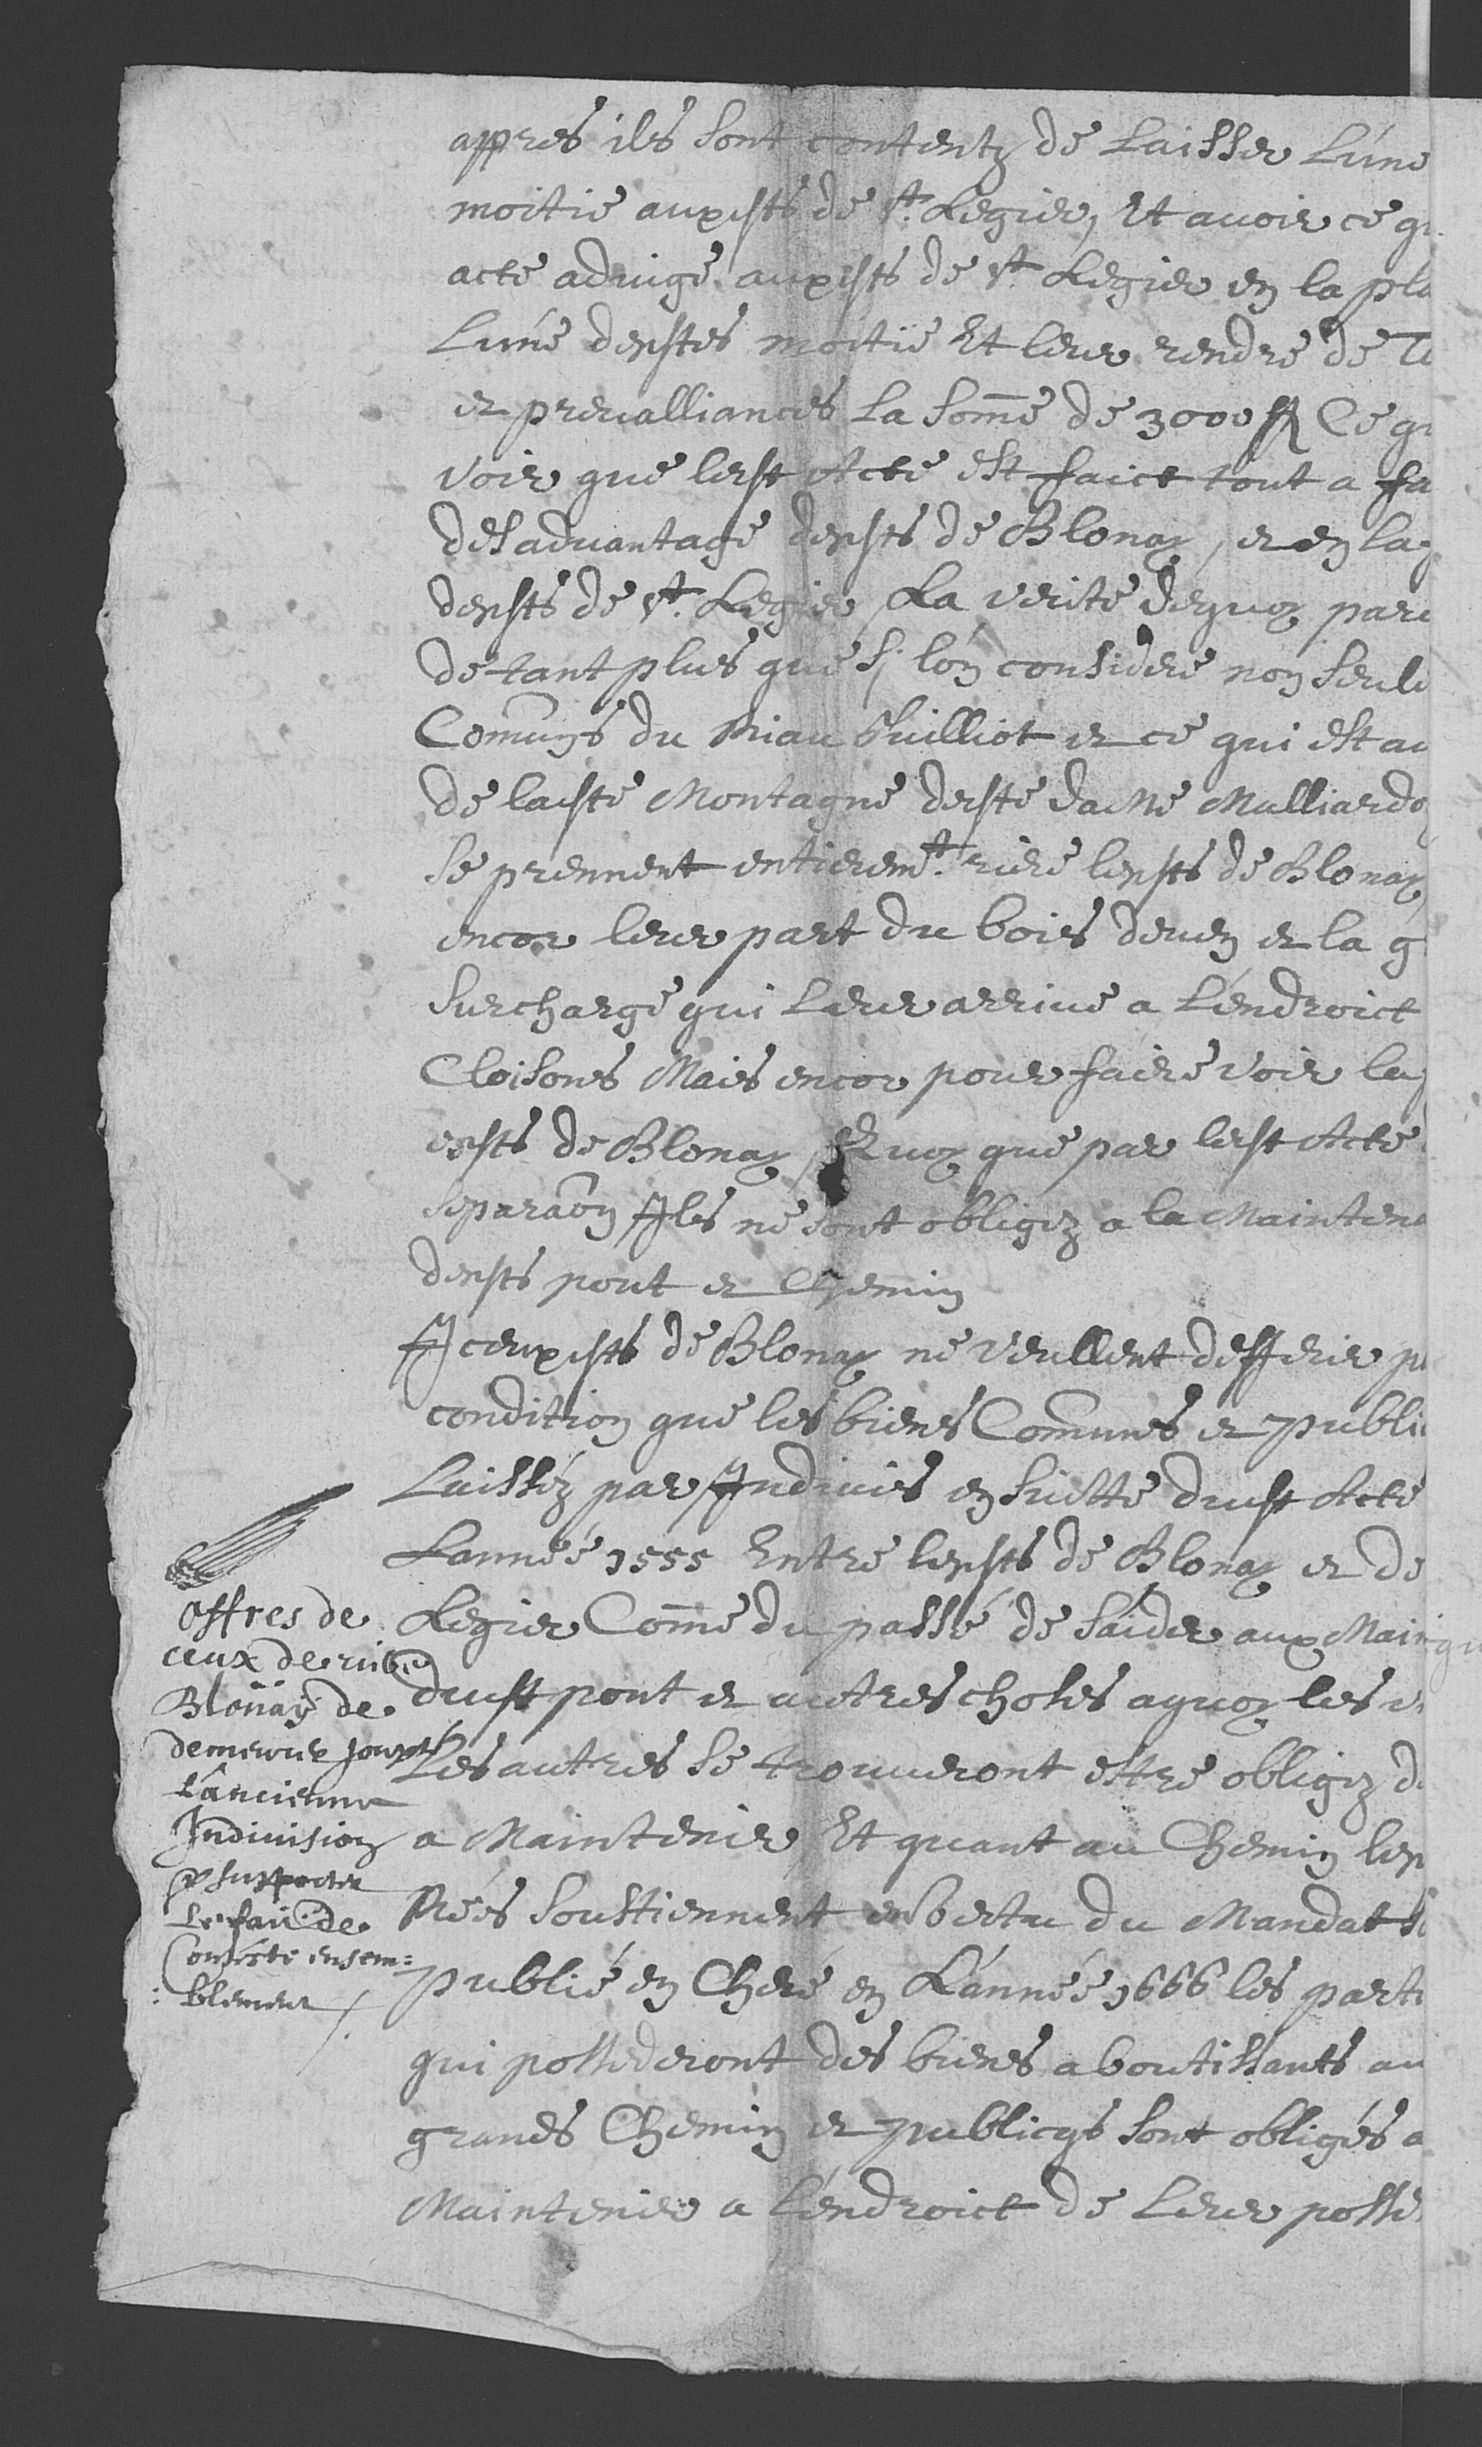 appres ils sont contentz de Laisser Lúne
moitie auxsts de St. Legier, Et avoir ce qu
acte adiugé auxsts de St Legier en la pla
Lúne desstes moitie Et leur rendre de
et prevalliances la som̄e de 3000 ff Ce qu
voir que ledst Acte est faict tout a fa
desadvantage dessts de Blonay, et en la
dessts de St. Legier, La verité dequoy
de tant plus que si lón considere non seule
Com̄uns du Riau Guilliot et ce qui est au
de ladste Montagne dedste dame Mulliardo
se prennent entieremt. riere lessts de Blonay
encor leur part du bois deven et la g
surcharge qui Leur arrive a Léndroict
Cloisons Mais encor pour faire voir la
essts de Blonay, Quoy que par ledst Acte
separaõn Ils ne sont obligez a la Mainten
dessts pont et Chemin
Iceuxsts de Blonay ne veullent defferir
condition que les biens Com̄uns et publi
Laissez par Indivis en suitte dudst Acte
Lannéé 1555 Entre lessts de Blonay et de
Legier Com̄e du passé de sáider aux Main
dudst pont et autres choses aquoy les
Les autres se trouveront estre obligez d
a Maintenir, Et quant au Chemin les
Réés soustiennent en vertu du Mandat
publié en Chere en Lánnéé 1666 les parti
qui possederont des biens aboutissants au
grands Chemin et publicqs sont obligés a
Maintenir a Léndroict de Leur posse
Offres de
ceux de
Blonay de
demeurer
Láncienne
Indivision
& supporter
Le fait de
ensem=
:blement /.